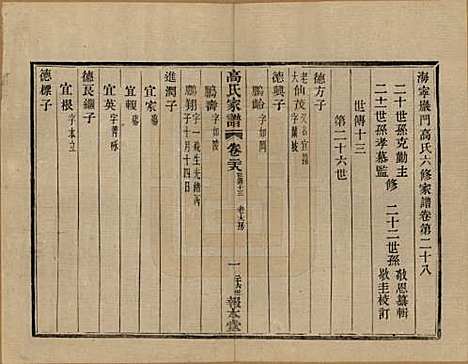 海寧巖門高氏六修家譜卷第二十八
二十世孫克勤主修
二十一世孫孝墓監修
二十二世孫敬恩纂輯
敬圭校訂
世傳十三
第二十六世
德方子
老仙茂 又名宜
字蘭
德興子
鵬齡 字如岡
高氏家譜 卷二十八 世傳十三
一 報本堂
鵬壽 字如陵
鵬翔 字一飛生光緒丙
子十月十四日
進潤子
宜家 殤
宜賴 殤
宜英 字菁
德長繼子
宜根 字本立
德標子